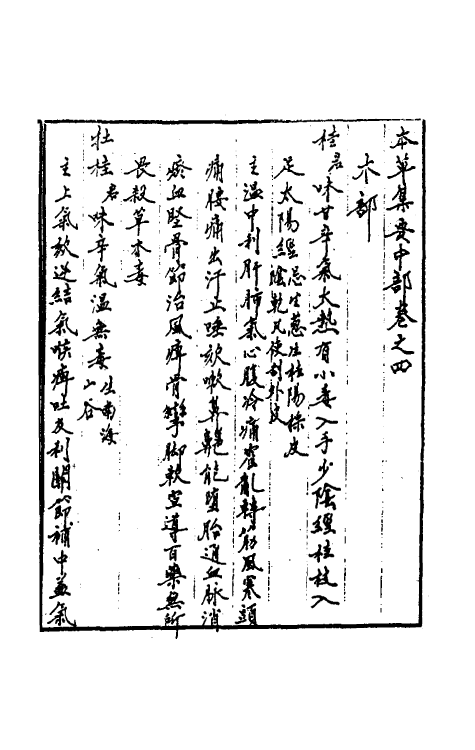 本草集要中部卷之四
木部
桂君味甘辛氣大熱有小毒入手少陰經桂枝入
足太陽經忌生葱生桂陽採皮陰乾凡使刮外皮
主溫中利肝肺氣心腹冷痛霍亂轉筋風寒頭
痛腰痛出汗止唾欬嗽鼻齆能墮胎通血脉消
瘀血堅骨節治風痺骨攣脚軟宣導百藥無所
畏殺草木毒
牡桂君味辛氣溫無毒生南海山谷
主上氣欬逆結氣喉痺吐及利關節補中益氣